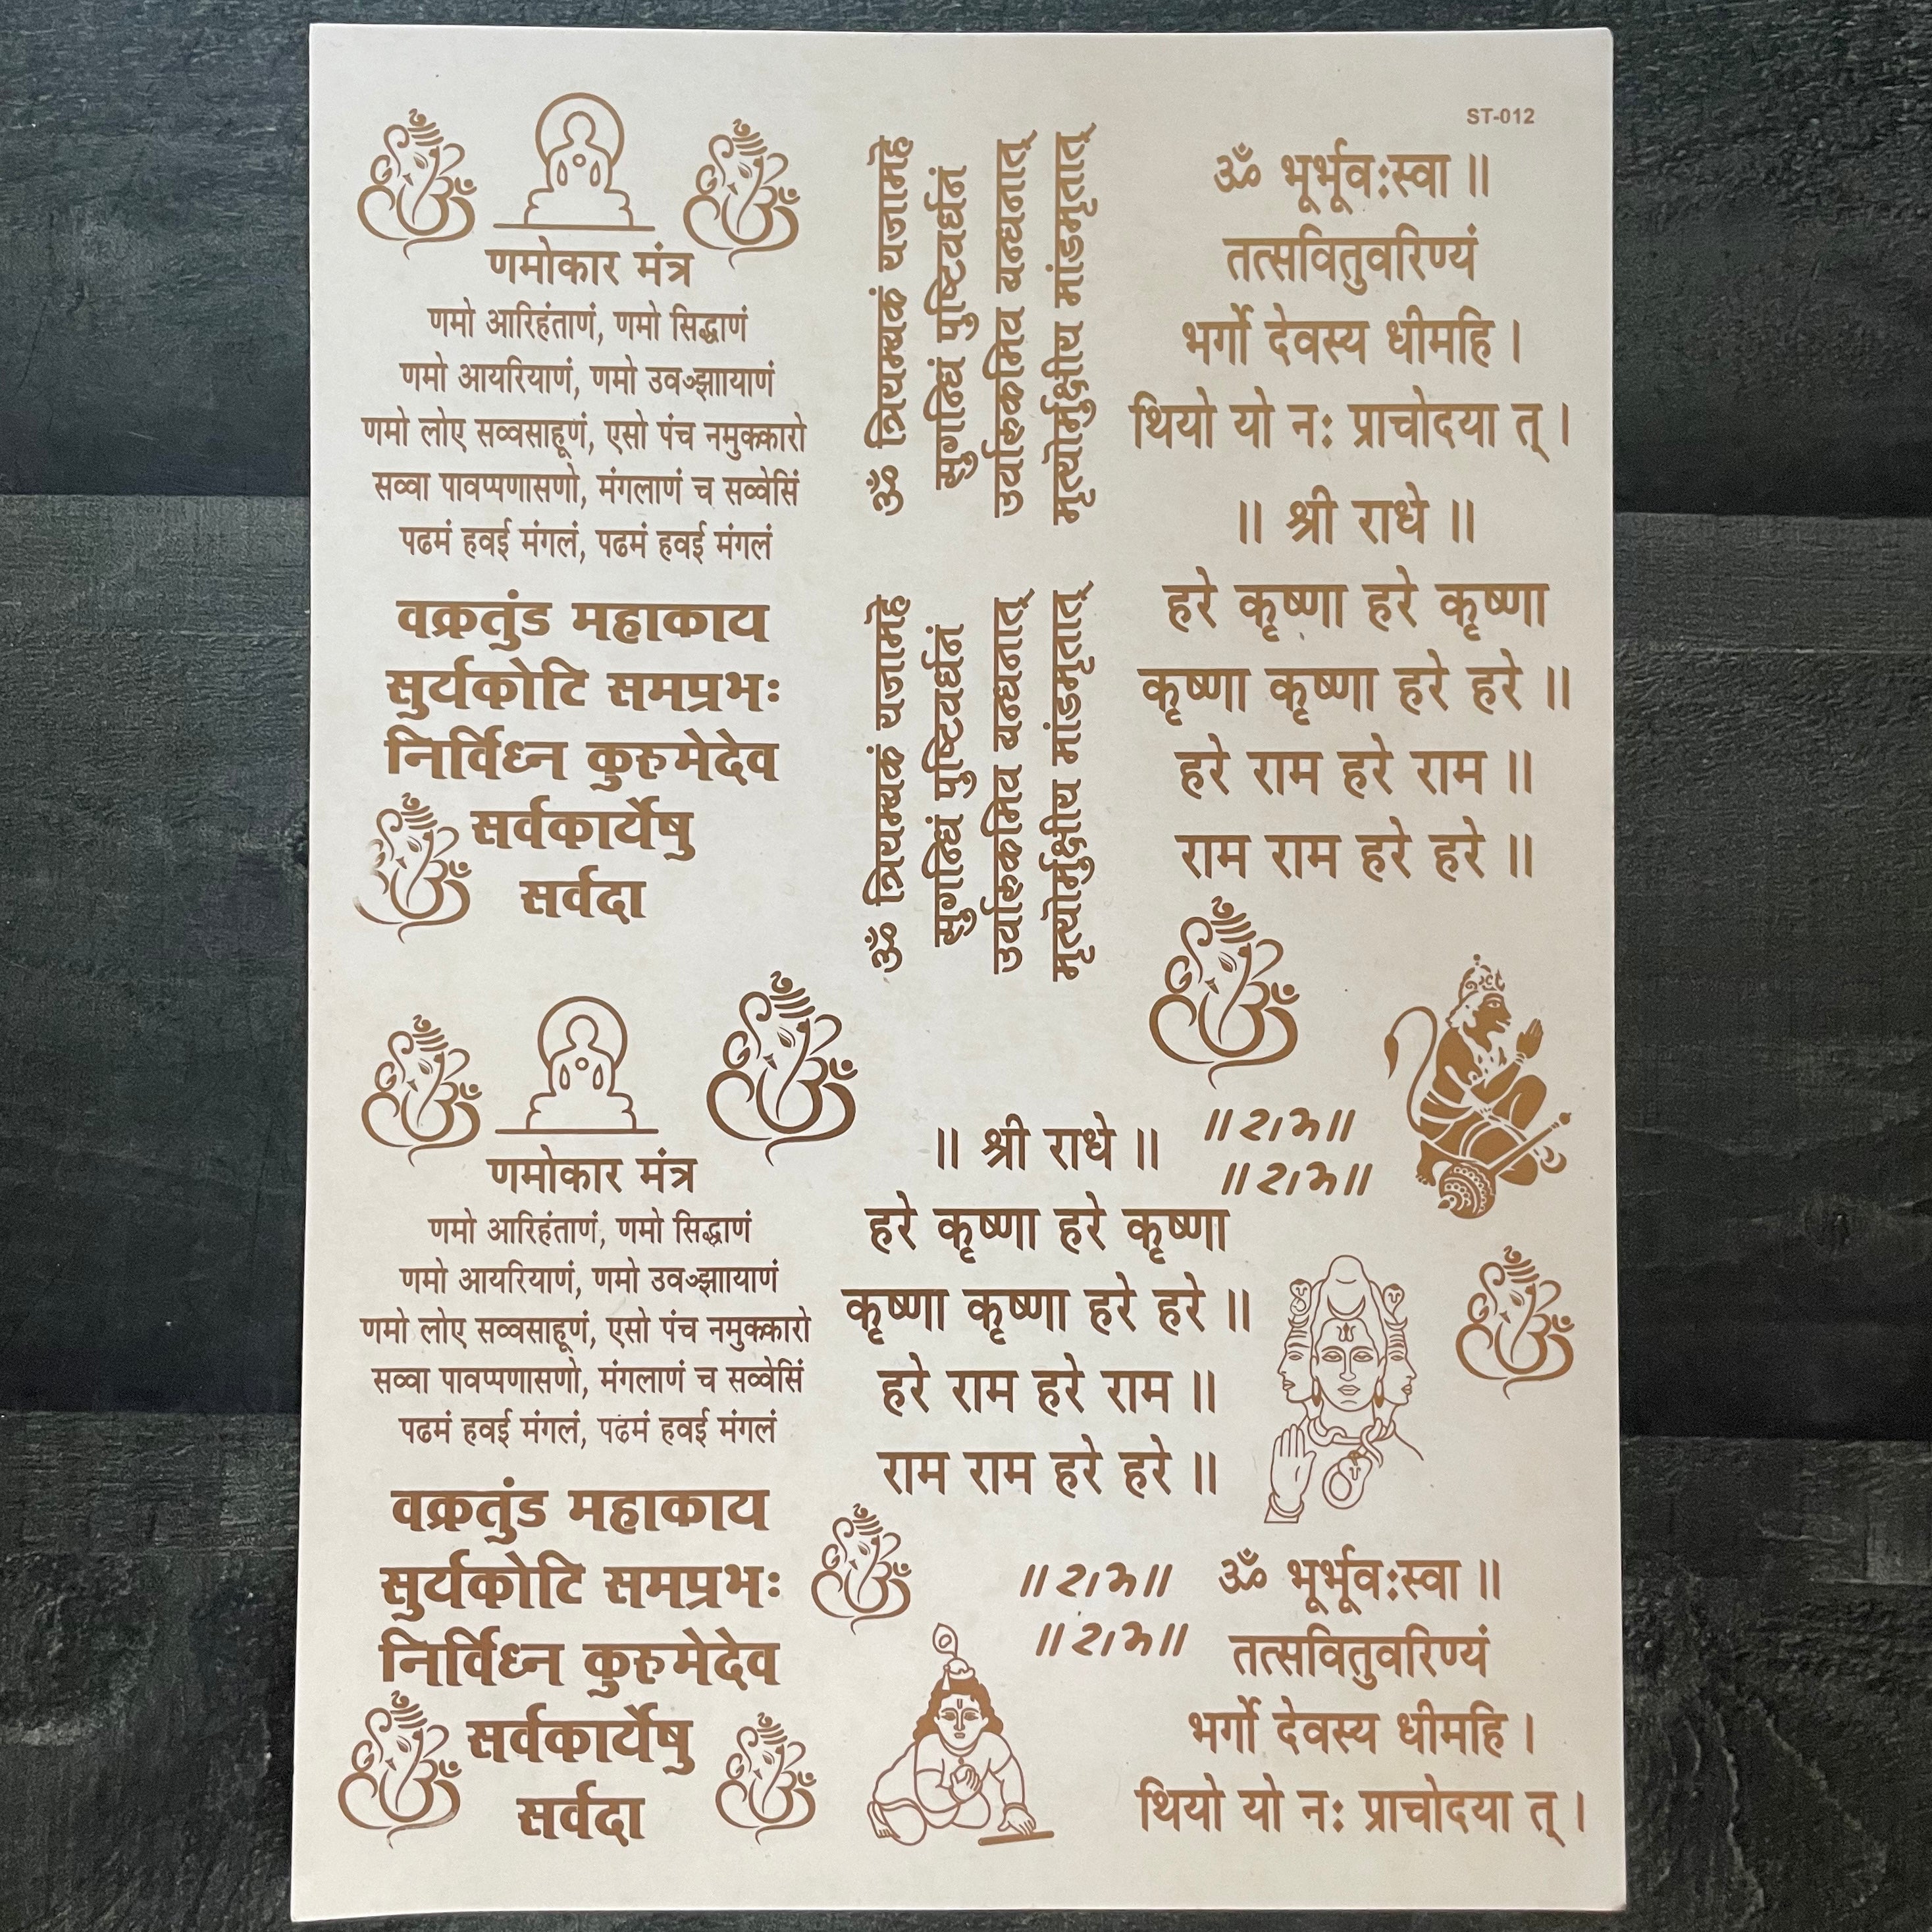 ST-012
णमोकार मंत्र
णमो आरिहंताणं, णमो सिद्धाणं
णमो आयरियाणं, णमो उवज्झाायाणं
णमो लोए सव्वसाहूणं, एसो पंच नमुक्कारो
सव्वा पावप्पणासणो, मंगलाणं च सव्वेसिं
पढमं हवई मंगलं, पढमं हवई मंगलं
वक्रतुंड महाकाय
सुर्यकोटि समप्रभः
निर्विध्न कुरुमेदेव
सर्वकार्येषु
सर्वदा
ॐ त्रियम्बकं यजामहे
सुगन्धिं पुष्टिवर्धनं
उर्वारुकमिव बन्धनात्
मृत्योर्मुक्षीय मांडमृतात्
ॐ त्रियम्बकं यजामहे
सुगन्धिं पुष्टिवर्धनं
उर्वारुकमिव बन्धनात्
मृत्योर्मुक्षीय मांडमृतात्
ॐ भूर्भूवःस्वा ॥
तत्सवितुवरिण्यं
भर्गो देवस्य धीमहि ।
थियो यो नः प्राचोदया त् ।
॥ श्री राधे ॥
हरे कृष्णा हरे कृष्णा
कृष्णा कृष्णा हरे हरे ॥
हरे राम हरे राम ॥
राम राम हरे हरे ॥
णमोकार मंत्र
णमो आरिहंताणं, णमो सिद्धाणं
णमो आयरियाणं, णमो उवज्झाायाणं
णमो लोए सव्वसाहूणं, एसो पंच नमुक्कारो
सव्वा पावप्पणासणो, मंगलाणं च सव्वेसिं
पढमं हवई मंगलं, पढमं हवई मंगलं
वक्रतुंड महाकाय
सुर्यकोटि समप्रभः
निर्विध्न कुरुमेदेव
सर्वकार्येषु
सर्वदा
॥ श्री राधे ॥
हरे कृष्णा हरे कृष्णा
कृष्णा कृष्णा हरे हरे ॥
हरे राम हरे राम ॥
राम राम हरे हरे ॥
॥ राम ॥
॥ राम ॥
॥ राम ॥
॥ राम ॥
ॐ भूर्भूवःस्वा ॥
तत्सवितुवरिण्यं
भर्गो देवस्य धीमहि ।
थियो यो नः प्राचोदया त् ।